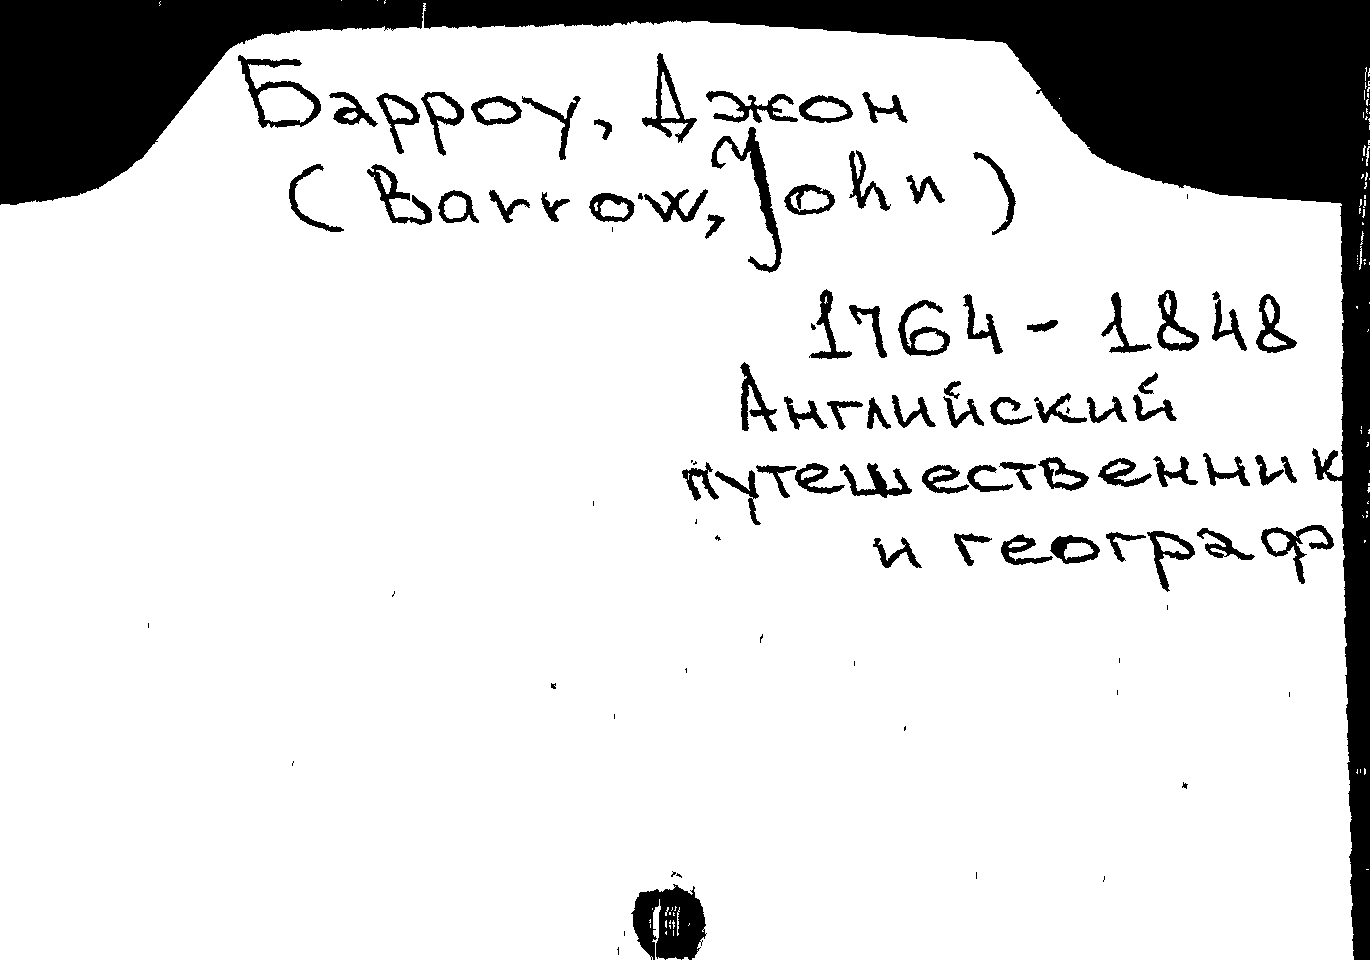 Барроу, Джон
(Barrow, John)
1764 - 1848
Английский
путешественник
и географ